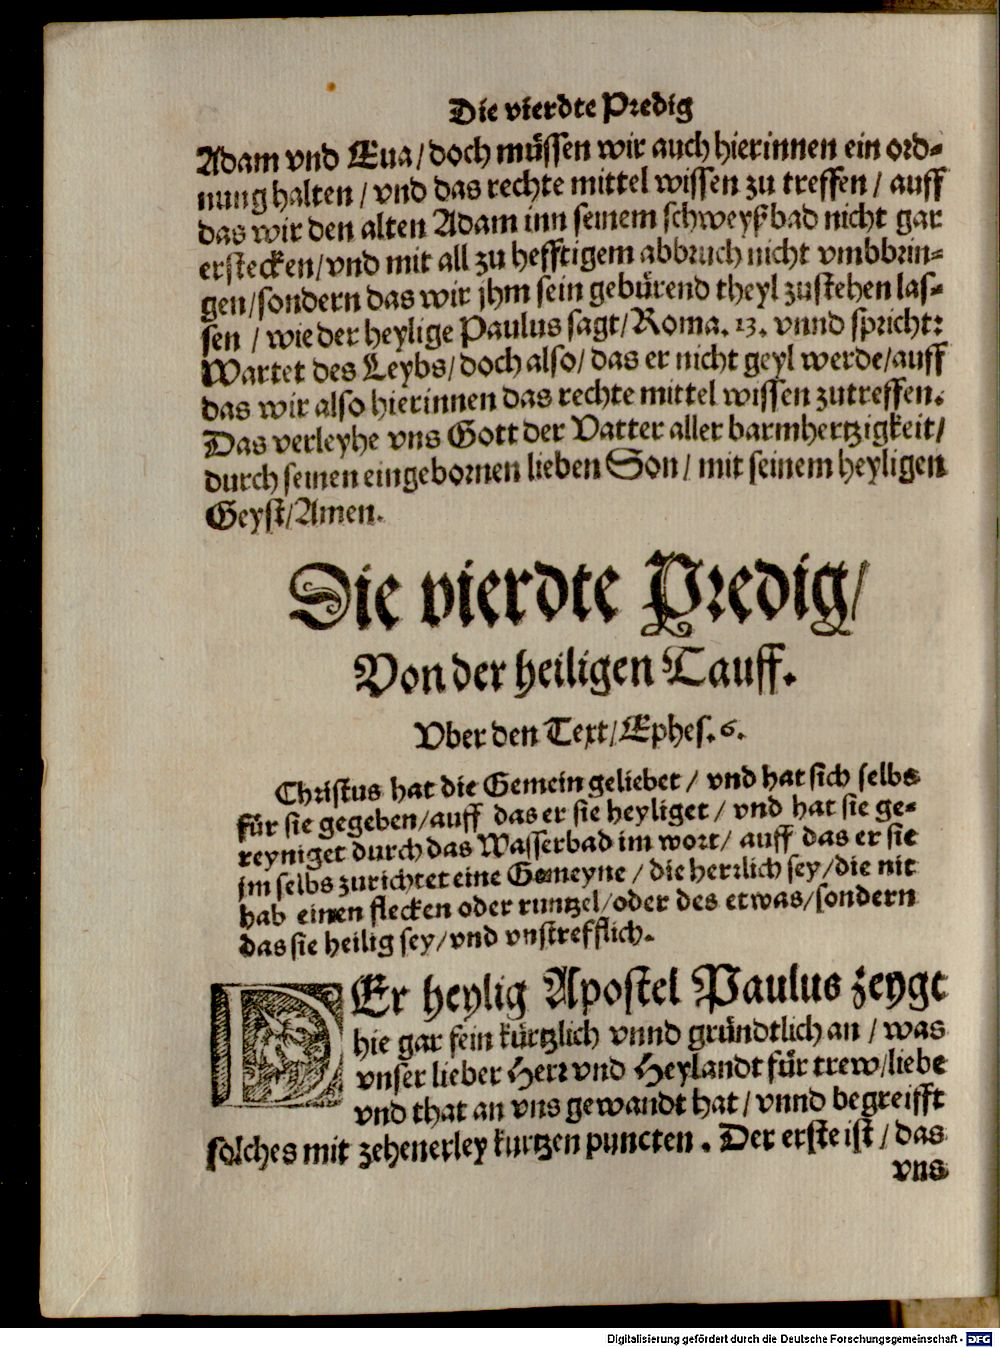 Die vierdte Predig
Adam vnd Eua/ doch müssen wir auch hierinnen ein ord-
nung halten / vnd das rechte mittel wissen zu treffen / auff
das wir den alten Adam inn seinem schweyßbad nicht gar
erstecken/ vnd mit all zu hefftigem abbruch nicht vmbbrin-
gen/ sondern das wir jhm sein gebürend theyl zustehen las-
sen / wie der heylige Paulus sagt/ Roma. 13. vnnd spricht:
Wartet des Leybs/ doch also/ das er nicht geyl werde/ auff
das wir also hierinnen das rechte mittel wissen zutreffen.
Das verleyhe vns Gott der Vatter aller barmhertzigkeit/
durch seinen eingebornen lieben Son/ mit seinem heyligen
Geyst/ Amen.
Die vierdte Predig/
Von der heiligen Tauff.
Vber den Text/ Ephes. 6.
Christus hat die Gemein geliebet / vnd hat sich selbs
für sie gegeben/ auff das er sie heyliget / vnd hat sie ge-
reyniget durch das Wasserbad im wort/ auff das er sie
jm selbs zurichtet eine Gemeyne / die herrlich sey/ die nit
hab einen flecken oder runtzel/ oder des etwas/ sondern
das sie heilig sey/ vnd vnstrefflich.
DEr heylig Apostel Paulus zeygt
hie gar fein kürtzlich vnnd gründtlich an / was
vnser lieber Herr vnd Heylandt für trew/ liebe
vnd that an vns gewandt hat/ vnnd begreifft
solches mit zehenerley kurtzen puncten. Der erste ist / das
vns
Digitalisierung gefördert durch die Deutsche Forschungsgemeinschaft - DFG